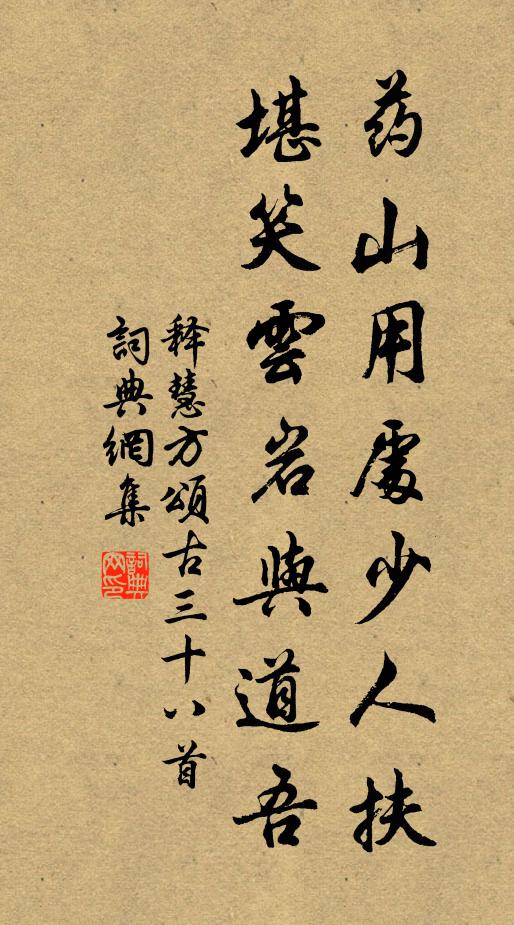 药山用處少人扶
堪笑雲岩與道吾
释慧方頌古三十八首
詞典網集
詞典网印